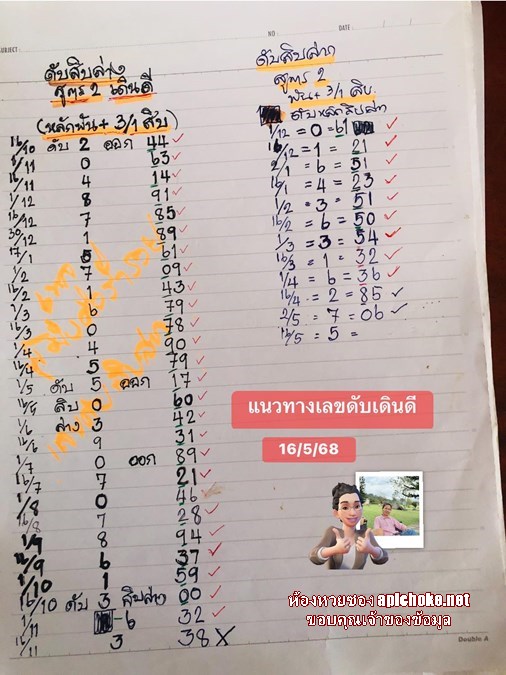 SUBJECT:
NO :
DATE : / /
ดับสิบล่าง
สูตร 2 เดินดี
(หลักพัน + 3/1 สิบ)
16/10 ดับ 2 ออก 44 ✓
1/11 0 63 ✓
16/11 4 14 ✓
1/12 8 91 ✓
16/12 7 85 ✓
30/12 1 89 ✓
17/1 5 61 ✓
1/2 7 09 ✓
16/2 1 43 ✓
1/3 6 79 ✓
16/3 0 78 ✓
1/4 4 90 ✓
16/4 5 79 ✓
1/5 ดับ 5 ออก 17 ✓
16/5 สิบ 0 60 ✓
1/6 ล่าง 3 42 ✓
9 31 ✓
1/7 0 ออก 89 ✓
16/7 7 21 ✓
1/8 0 46 ✓
16/8 7 28 ✓
1/9 8 94 ✓
6 37 ✓
1/10 1 59 ✓
16/10 ดับ 3 สิบล่าง 00 ✓
1/11 - 6 32 ✓
16/11 3 38 X
ดับสิบล่าง
สูตร 2
พัน + 3/1 สิบ.
ดับหลักสิบล่าง
1/12 = 0 = 61
16/12 = 1 = 21 ✓
2/1 = 6 = 51 ✓
16/1 = 4 = 23 ✓
1/2 = 3 = 51 ✓
16/2 = 6 = 50 ✓
1/3 = 3 = 54 ✓
16/3 = 1 = 32 ✓
1/4 = 6 = 36 ✓
16/4 = 2 = 85 ✓
2/5 = 7 = 06 ✓
16/5 = 5 =
แนวทางเลขดับเดินดี
16/5/68
ห้องหวยซอง apichoke.net
ขอบคุณเจ้าของข้อมูล
Double A